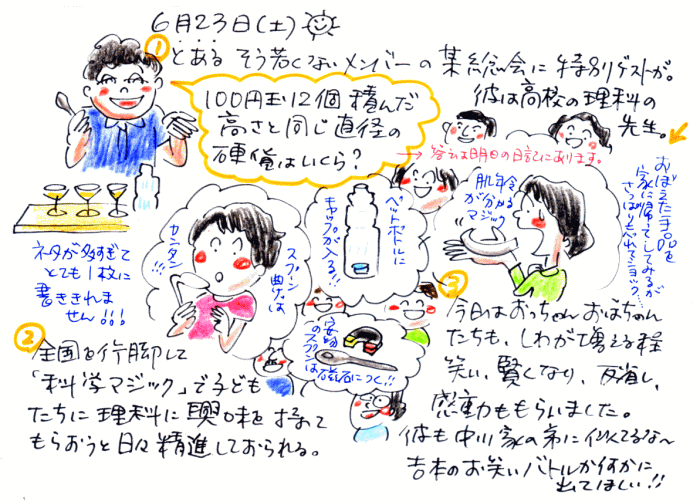 6月23日(土)
①
とある そう若くないメンバーの某総会に特別ゲストが。
彼は高校の理科の
先生。
100円玉12個積んだ
高さと同じ直径の
硬貨はいくら?
→答えは明日の日記にあります。
おぼえた手品を
家に帰ってしてみるが
さっぱりもべれてショック…
肌年令
が分かる
マジック
ペットボトルに
キャップが入る!!
スプーン
曲げは
カンタン
!!!
ネタが多すぎて
とても1枚に
書ききれま
せん!!!
安物
のスプーンは
磁石につく!!
②
全国を行脚して
「科学マジック」で子ども
たちに理科に興味を持って
もらおうと日々精進しておられる。
③
今日はおっちゃんおばちゃん
たちも、しわが増える程
笑い、賢くなり、反省し、
感動ももらいました。
彼も中川家の弟に似てるな~
吉本のお笑いバトルか何かに
出てほしい!!